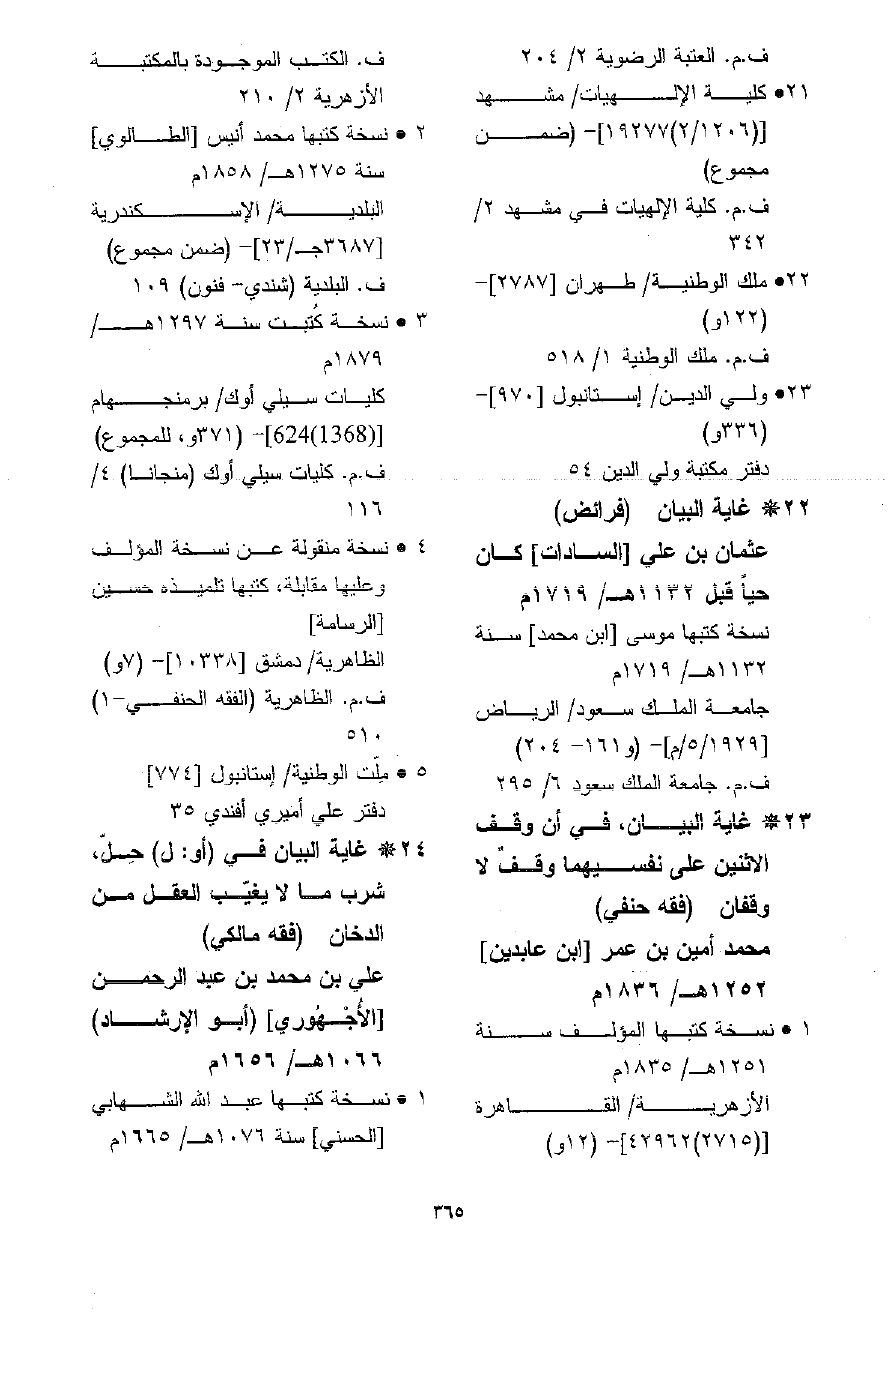 ف.م. العتبة الرضوية ٢/ ٢٠٤
٢١• كلية الإلهيات/ مشهد
[(٢/١٢٠٦)١٩٢٧٧]- (ضمن
مجموع)
ف.م. كلية الإلهيات في مشهد ٢/
٣٤٢
٢٢• ملك الوطنية/ طهران [٢٧٨٧]-
(١٢٢و)
ف.م. ملك الوطنية ١/ ٥١٨
٢٣• ولي الدين/ إستانبول [٩٧٠]-
(٣٣٦و)
دفتر مكتبة ولي الدين ٥٤
٢٢ * غاية البيان (فرائض)
عثمان بن علي [السادات] كان
حياً قبل ١١٣٢هـ/ ١٧١٩م
نسخة كتبها موسى [ابن محمد] سنة
١١٣٢هـ/ ١٧١٩م
جامعة الملك سعود/ الرياض
[١٩٢٩/٥/م]- (و١٦١- ٢٠٤)
ف.م. جامعة الملك سعود ٦/ ٢٩٥
٢٣ * غاية البيان، في أن وقف
الاثنين على نفسيهما وقفٌ لا
وقفان (فقه حنفي)
محمد أمين بن عمر [ابن عابدين]
١٢٥٢هـ/ ١٨٣٦م
١ • نسخة كتبها المؤلف سنة
١٢٥١هـ/ ١٨٣٥م
الأزهرية/ القاهرة
[(٢٧١٥)٤٢٩٦٢]- (١٢و)
ف. الكتب الموجودة بالمكتبة
الأزهرية ٢/ ٢١٠
٢ • نسخة كتبها محمد أنيس [الطالوي]
سنة ١٢٧٥هـ/ ١٨٥٨م
البلدية/ الإسكندرية
[٣٦٨٧جـ/٢٣]- (ضمن مجموع)
ف. البلدية (شندي- فنون) ١٠٩
٣ • نسخة كُتبت سنة ١٢٩٧هـ/
١٨٧٩م
كليات سيلي أوك/ برمنجهام
[624(1368)]- (٣٧١و، للمجموع)
ف.م. كليات سيلي أوك (منجانا) ٤/
١١٦
٤ • نسخة منقولة عن نسخة المؤلف
وعليها مقابلة، كتبها تلميذه حسين
[الرسامة]
الظاهرية/ دمشق [١٠٣٣٨]- (٧و)
ف.م. الظاهرية (الفقه الحنفي-١)
٥١٠
٥ • ملّت الوطنية/ إستانبول [٧٧٤]
دفتر علي أميري أفندي ٣٥
٢٤ * غاية البيان في (أو: ل) حِلّ،
شرب ما لا يغيّب العقل من
الدخان (فقه مالكي)
علي بن محمد بن عبد الرحمن
[الأُجْهُوري] (أبو الإرشاد)
١٠٦٦هـ/ ١٦٥٦م
١ • نسخة كتبها عبد الله الشهابي
[الحسني] سنة ١٠٧٦هـ/ ١٦٦٥م
٣٦٥